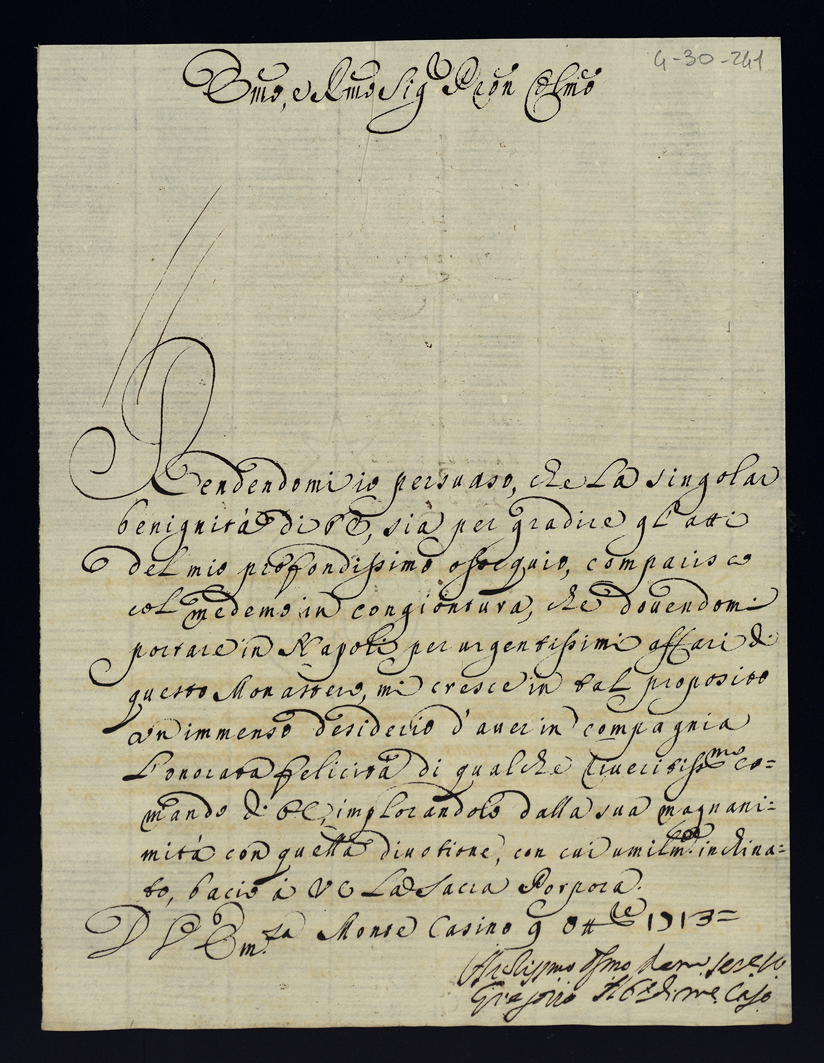 4-30-241
Emo, e Rmo Sig.r Pron Colmo
Rendendomi io persuaso, che La singolar
benignità di VE, sia per gradire gl'atti
del mio profondissimo ossequio, comparisco
col medemo in congiontura, che dovendomi
portare in Napoli per urgentissimi affari di
questo Monastero, mi cresce in tal proposito
un immenso desiderio d'aver in compagnia
L'onorata felicità di qualche riveritissmo co=
mando di VE, implorandolo dalla sua magnani=
mità con quella divotione, con cui umilm.e inchina=
to, bacio à VE La Sacra Porpora.
D V Em.za Monte Casino 9 8tt.re 1713=
Gregorio Ab.e di M. Caso